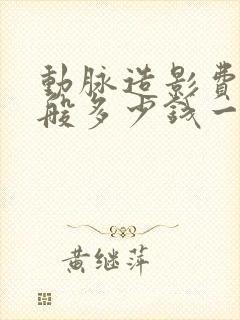 動脉造影費
般多少钱一
黄继萍